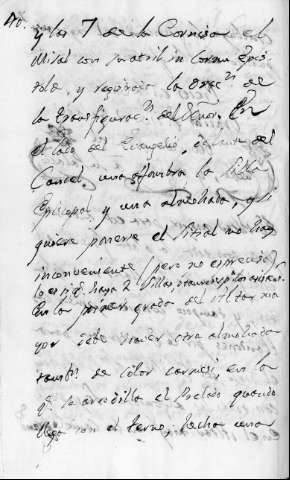 y los 7 de la Cornisa el
Misal con su atril in cornu Epis
tole, y registrado la Orac.n de
la transfigurac.n del Señor. En
el lado del Evangelio, delante del
Cancel una alfombra la Silla
Episcopal y una almohada, y si
quiere ponerse el sitial no hay
inconveniente (pero no es preciso)
lo es q.e haya 2 sillas
En la primer grada de el Altar ma
yor debe haver otra almohada
tamb.n de color carmesi, en la
q.e se arrodilla el Prelado quando
llega con el terno, hecha una